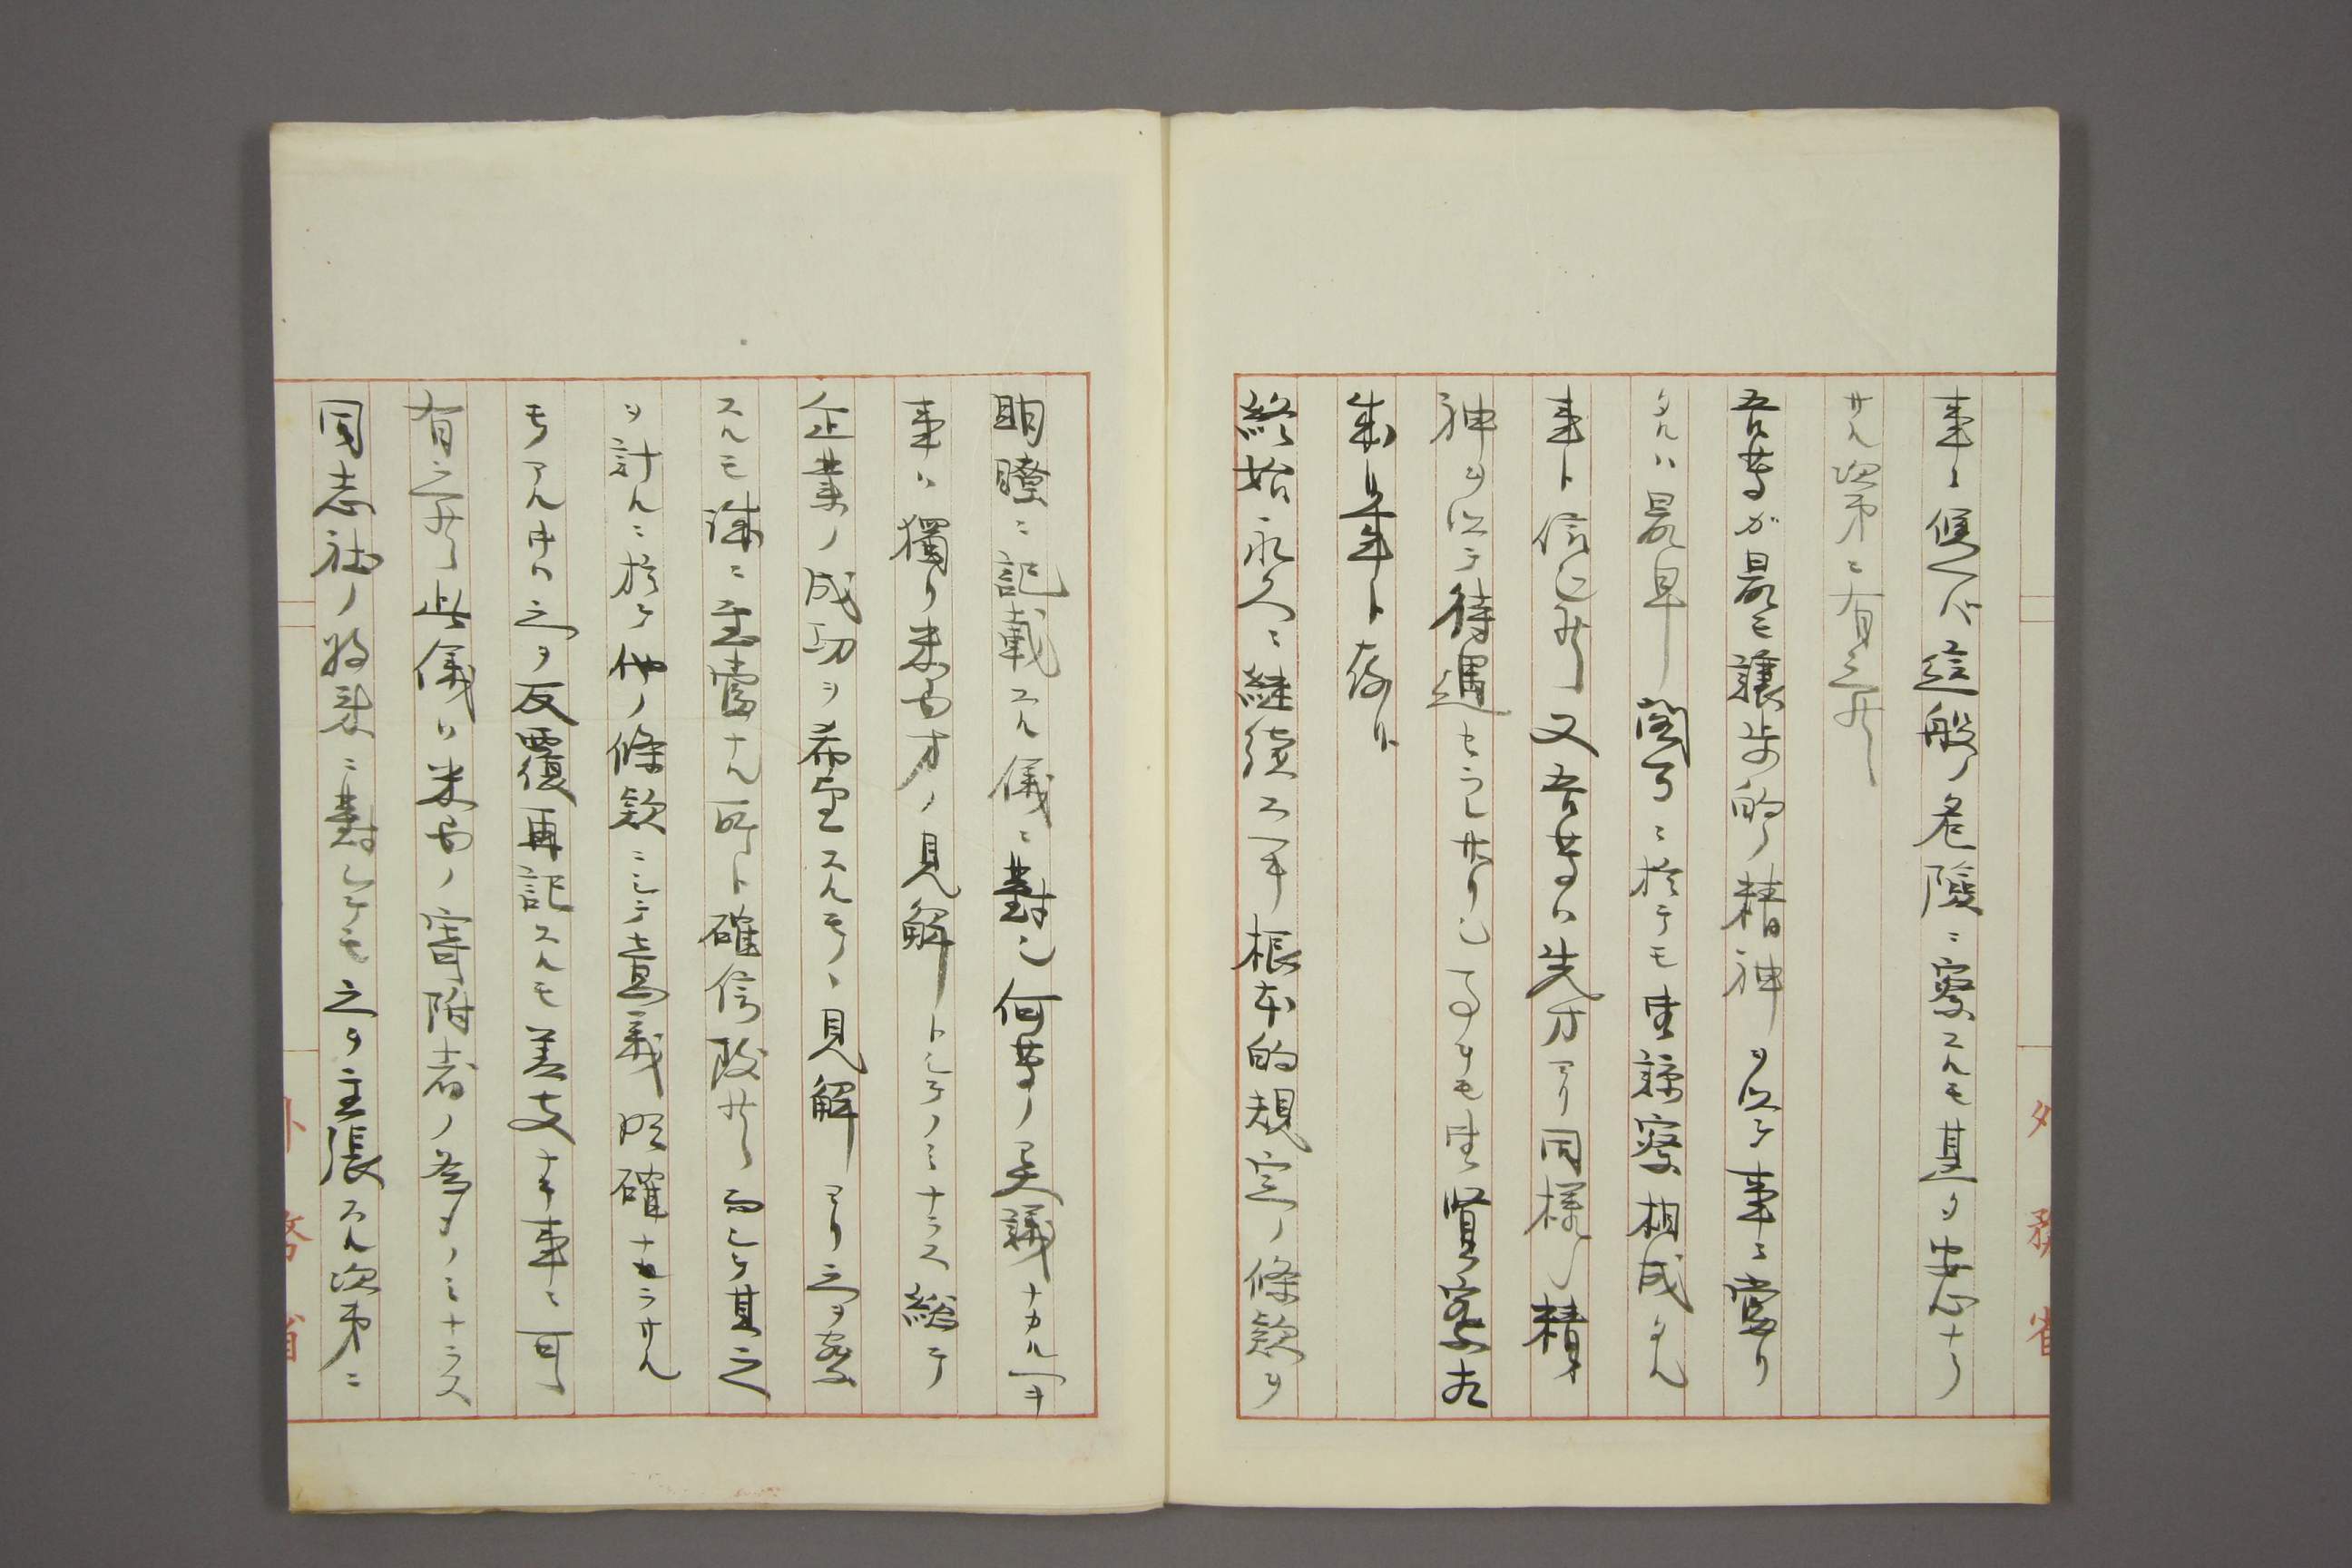 事ニ候ヘバ這般ノ危險ニ察スルモ甚タ安心ナラ
サル次第ニ有之候
吾等カ最モ讓歩的ノ精神ヲ以テ事ニ當リ
タルハ最早 閣下ニ於テモ御諒察相成タル
事ト信シ候 又吾等ハ先方ヨリ同様ノ精
神ヲ以テ待遇セラレサリシ事ヲモ御賢察出
来候事ト存候
終始永久ニ繼續スヘキ根本的規定ノ條款ヲ
明瞭ニ記載スル儀ニ對シ何等ノ異議ナカルヘキ
事ハ獨リ米國方ノ見解トシテノミナラス総テ
企業ノ成功ヲ希望スルモノヽ見解ヨリ之ヲ察
スルモ誠ニ至當ナル所ト確信致候 而シテ其之
ヲ計ルニ於テ他ノ條款ニシテ意義明確ナラサル
モノアル時ハ之ヲ反覆再記スルモ差支ナキ事ニ可
有之候 此儀ハ米國ノ寄附者ノ為メノミナラス
同志社ノ將来ニ對シテモ之ヲ主張スル次第ニ
外務省
外務省